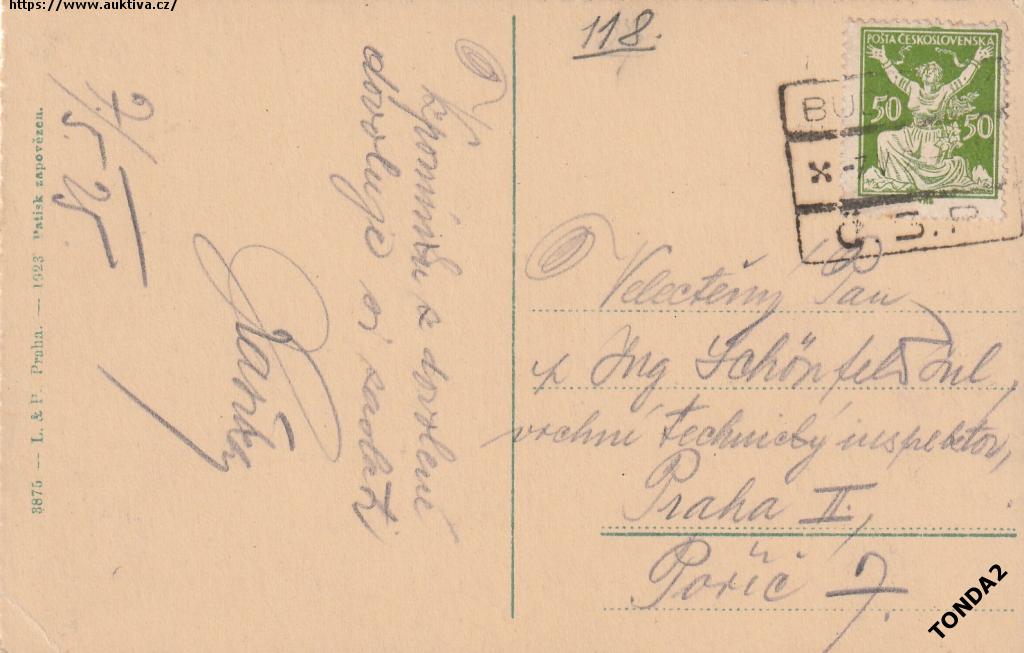 https://www.auktiva.cz/
118.
POŠTA ČESKOSLOVENSKÁ
50 50
BU
X -7
Č S.P
Vzpomínku s dovolené
dovoluje si zaslati
7/5 25
3875 — L. & P. Praha. — 1923 Patisk zapovězen.
Velectěný Pan
Ing Schönfeld Jul,
vrchní technický inspektor,
Praha II,
Poříč 7.
TONDA2